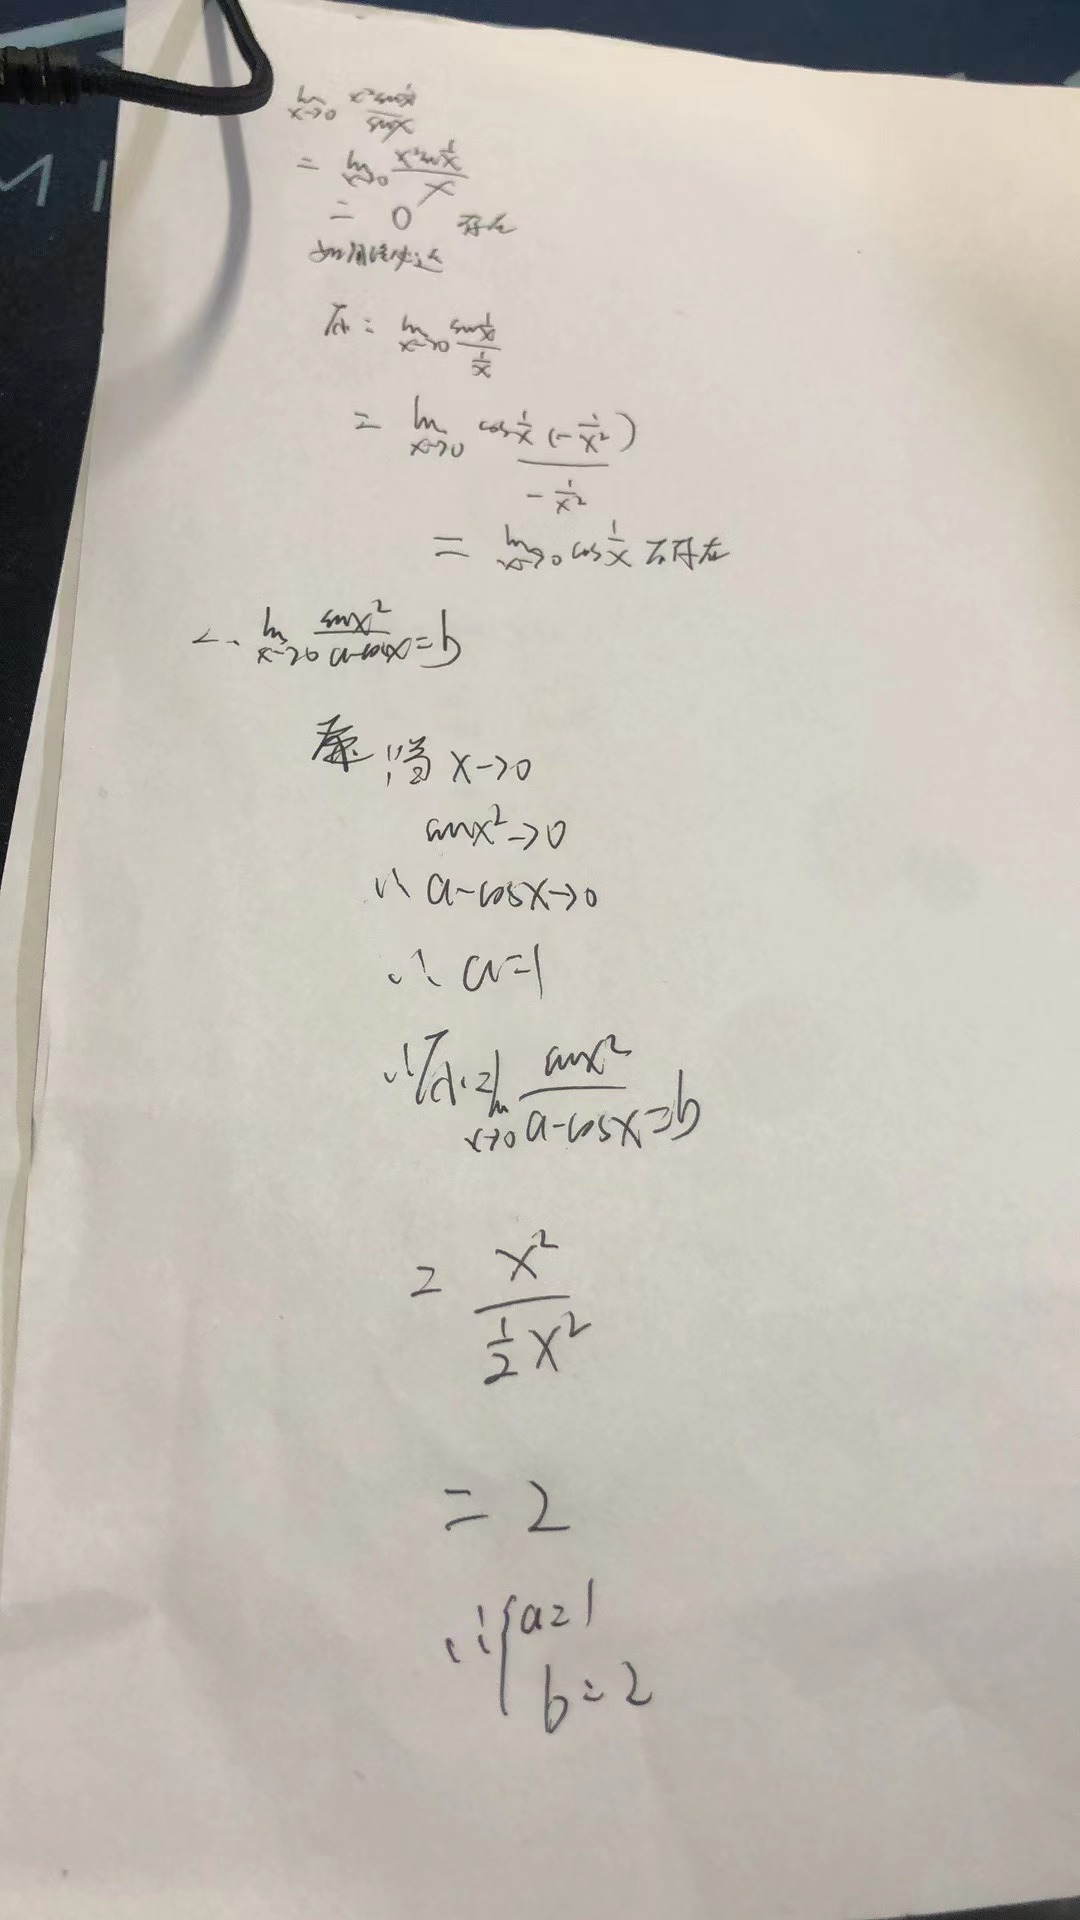 lim x→0 x²sin1/x / sinx
= lim x→0 x²sin1/x / x
= 0 存在
如用洛必达
原式= lim x→0 sin1/x / 1/x
= lim x→0 cos1/x (-1/x²) / -1/x²
= lim x→0 cos1/x 不存在
lim x→0 sinx² / a-cosx = b
∵当 x→0
sinx²→0
∴ a-cosx→0
∴ a=1
∴原式= lim x→0 sinx² / a-cosx = b
= x² / ½x²
= 2
∴ { a=1
b=2
MI